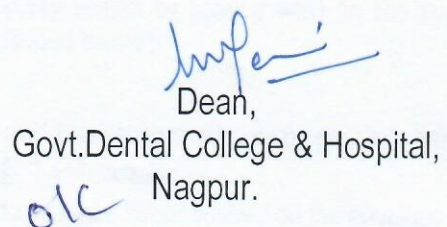 Dean,
Govt.Dental College & Hospital,
Nagpur.
O/C